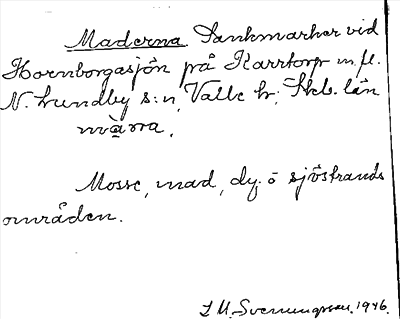 Maderna Sankmarker vid
Hornborgasjön på Karrtorp m.fl.
N. Lundby s:n, Valle hr, Skb. län
mà̱rra.
Mosse, mad, dy- o sjöstrands
områden.
I.M. Svenungsson. 1946.